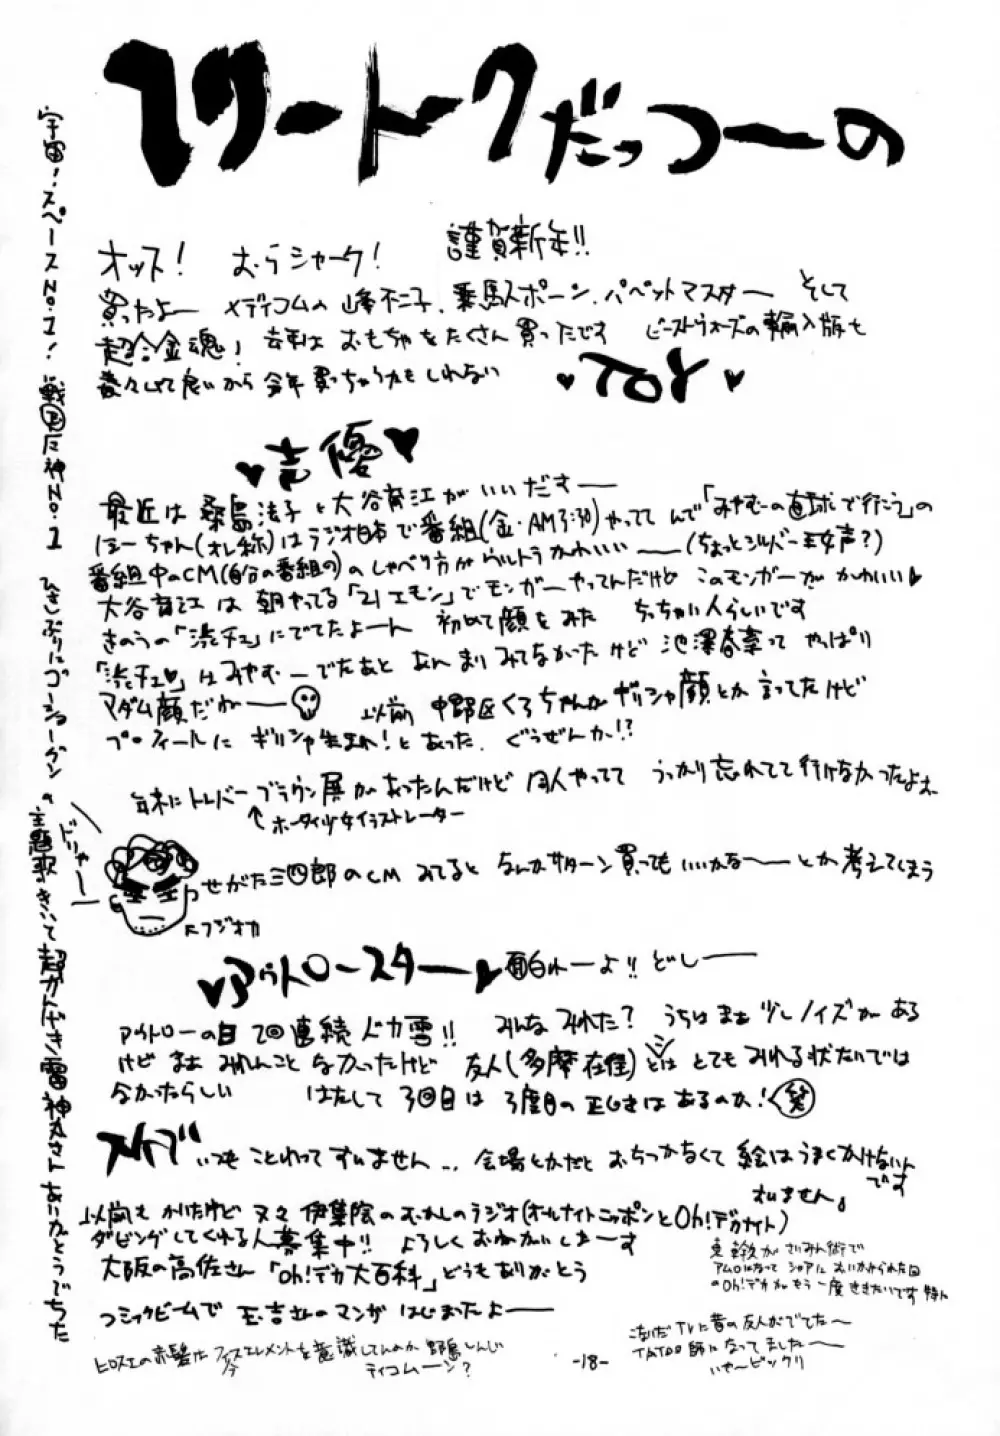 フリートークだっつーの
オッス! むらシャーク! 謹賀新年!!
買ったよー メディコムの峰不二子、乗馬スポーン、パペットマスター そして
超合金魂! 去年は おもちゃをたくさん買ったです ビーストウォーズの輸入版も
着々として良いから 今年買っちゃうかもしれない
TOY
声優
最近は 桑島法子と大谷育江がいいだすー
ほーちゃん(オレ称)はラジオ日本で番組(金・AM3:30)やってて んで「みやむーの直球で行こう」の
番組中のCM(自分の番組の)のしゃべり方がウルトラかわいいー (ちょっとシルバー王女声?)
大谷育江は 朝やってる「21エモン」でモンガーやってんだけど このモンガーがかわいい
きのうの「渋チェ」にでてたよーん 初めて顔をみた ちっちゃい人らしいです
「渋チェ」はみやむーでたあと あんまりみてなかったけど 池澤春菜って やっぱり
マダム顔だねー 以前 中野区くろちゃんがギリシャ顔とか言ってたけど
プロフィールに ギリシャ生まれ!とあった、ぐうぜんか!?
年末にトレバーブラウン展があったんだけど 同人やってて うっかり忘れてて行けなかったよお
↑ホータイ少女イラストレーター
せがた三四郎のCM みてると なんかサターン買ってもいいかなーとか考えてしまう
フジオカ
ドリャー
アウトロースター 面白れーよ!! どしー
アウトローの日 2回連続ドカ雪!! みんなみれた? うちはまぁ少しノイズがある
けど まぁ みれんことなかったけど 友人(多摩在住)とは とてもみれる状たいでは
なかったらしい はたして3回目は 3度目の正じきはあるのか!(笑)
スケブ いつも ことわってすいません… 会場とかだと おちつかなくて 絵はうまくかけないん
です
すいません。
以前も かいたけど 又々 伊集院のむかしのラジオ(オールナイトニッポンとOh!デカナイト)
ダビングしてくれる人募集中!! よろしくおねがいしまーす
大阪の高佐さん「Oh!デカ大百科」どうもありがとう
東幹久がさいみん術で
アムロになって シャアに おいかけられた回
のOh!デカがもう一度ききたいです 特に
コミックビームで 玉吉さんのマンガはじまったよー
こないだTVに昔の友人がでてたー
TATOO師になってましたー
いやービックリ
ヒロスエの赤髪は フィフスエレメントを意識してんのか 野島しんじ
ティコムーン?
-18-
宇宙!スペースNo.1! 戦国魔神No.1 ひさしぶりにゴーショーグンの主題歌きいて超かんげき 雷神丸さんありがとうでちた